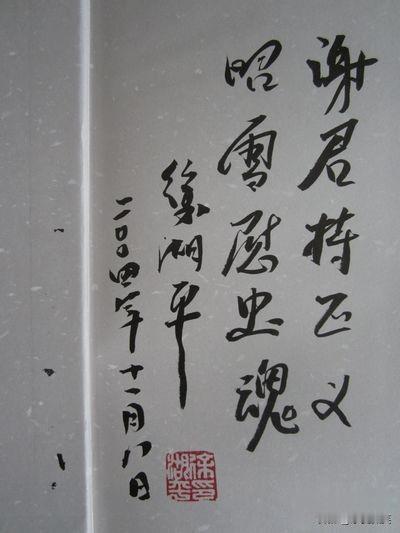 谢君持正义
昭雪慰忠魂
徐湖平
二〇〇四年十一月八日
徐湖平印